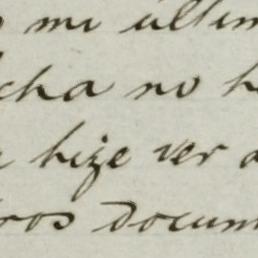 mi últim
cha no h
hize ver a
ros Docum